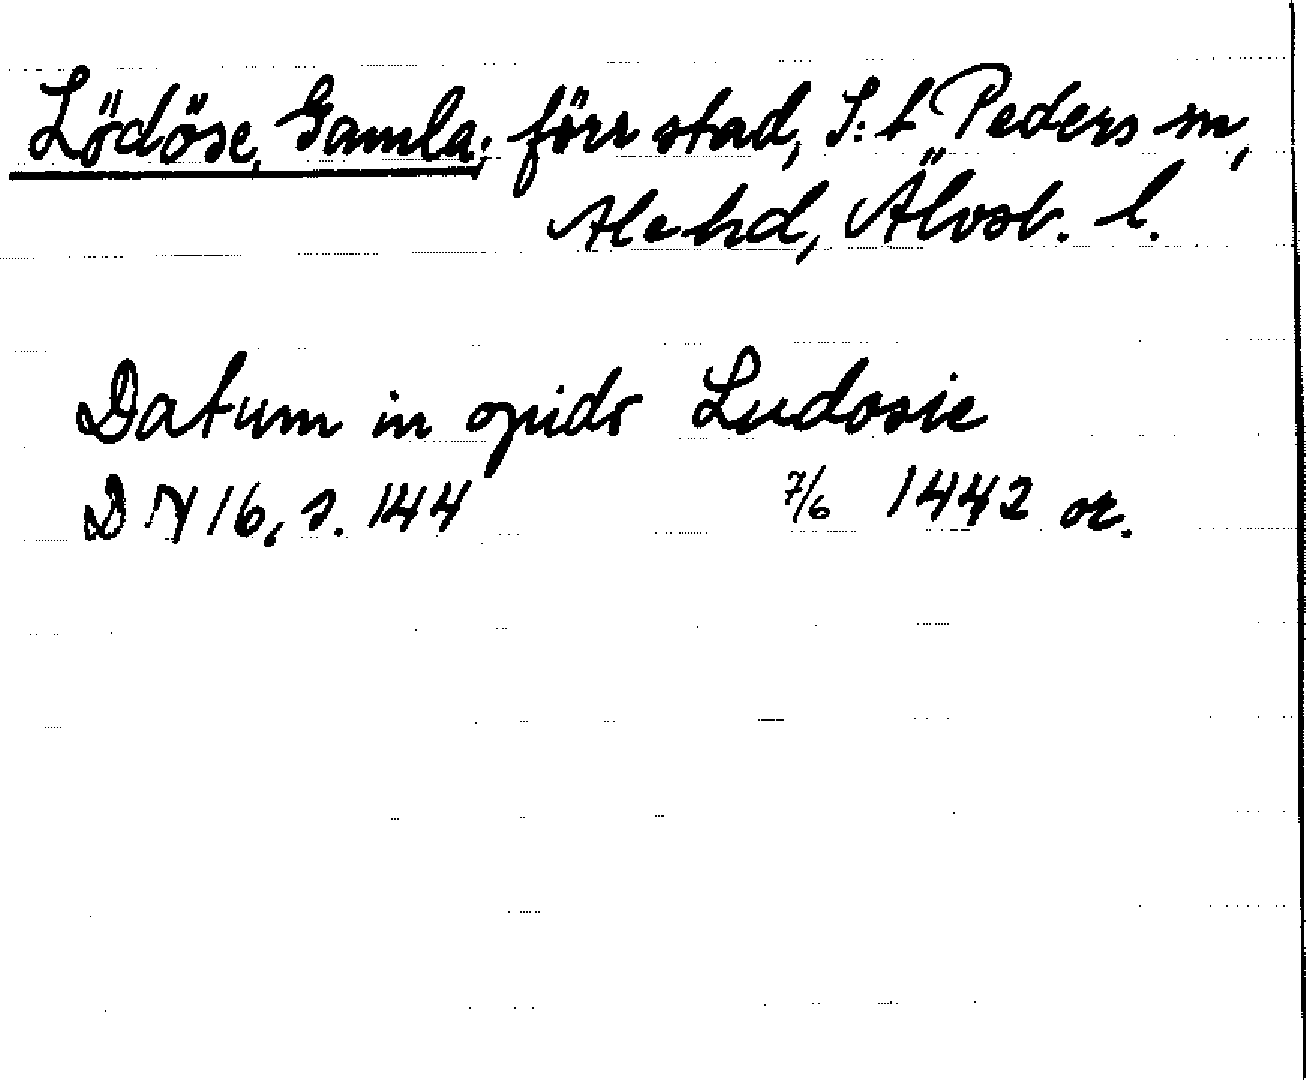 Lödöse, Gamla; förr stad, S:t Peders sn,
Ale hd, Älvsb. l.
Datum in opido Ludosie
DN 16, s. 144 7/6 1442 or.